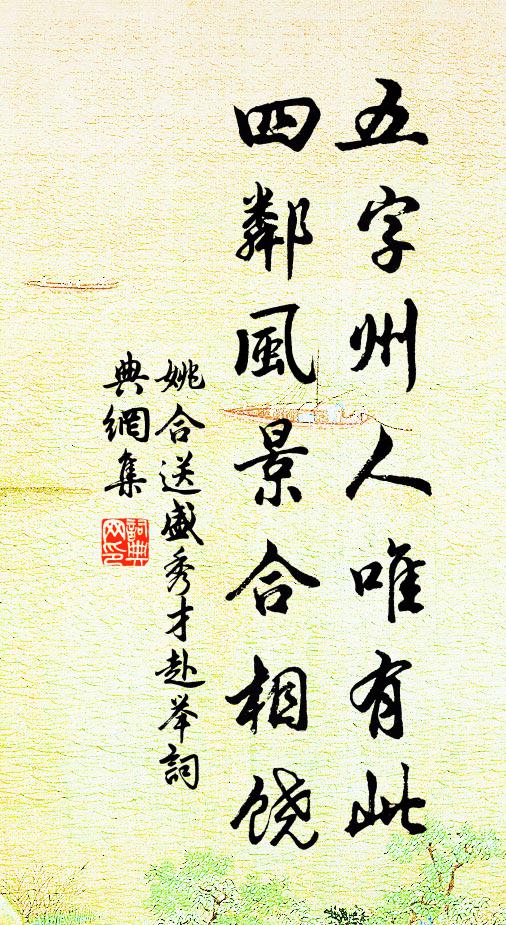 五字州人唯有此
四鄰風景合相饒
姚合送盛秀才赴举詞
典網集
詞典
网印